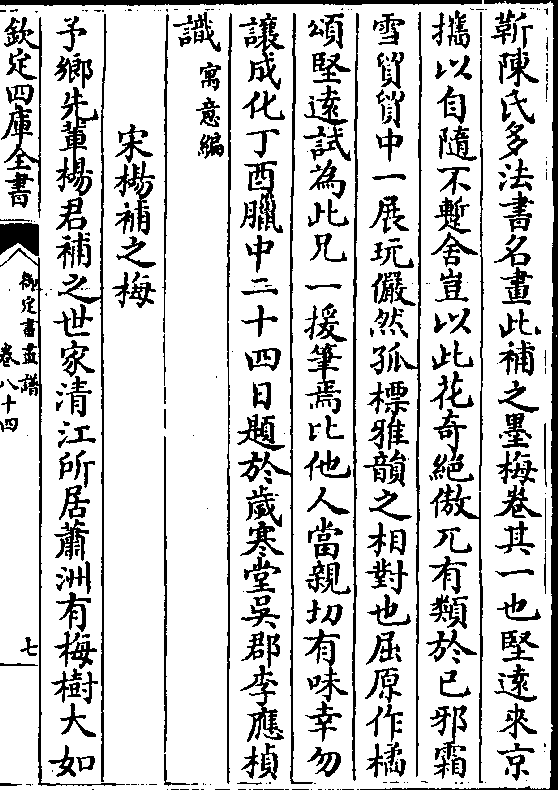 靳陳氏多法書名畫此補之墨梅卷其一也堅逺來京
攜以自隨不蹔舍豈以此花奇絶傲兀有類於已邪霜
雪貿貿中一展玩儼然孤標雅韻之相對也屈原作橘
頌堅逺試為此兄一援筆焉比他人當親切有味幸勿
讓成化丁酉臘中二十四日題於歲寒堂吳郡李應楨
識寓意編
宋楊補之梅
予鄉先輩楊君補之世家清江所居蕭洲有梅樹大如
欽定四庫全書
御定書畫譜
卷八十四
七